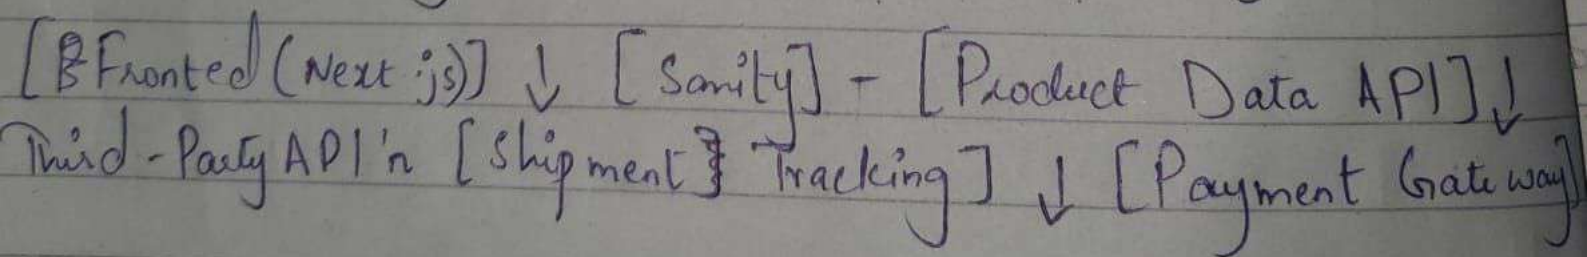 [Fronted (Next js)] ↓ [Sanity] - [Product Data API] ↓
Third-Party API'n [Shipment Tracking] ↓ [Payment Gateway]